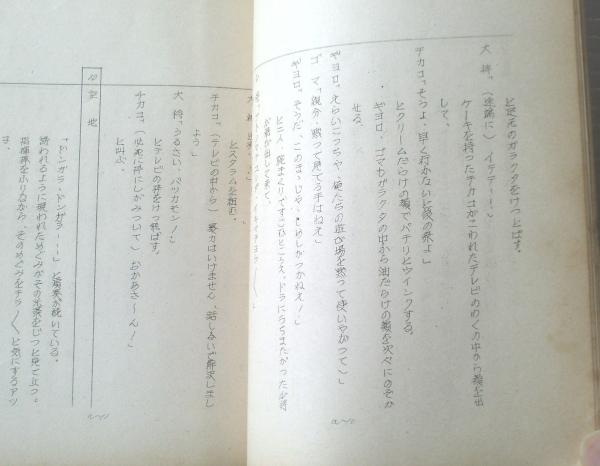 と足元のガラクタをけっとばす。
大将。(途端に)イテテ……。」
ケーキを持ったチカコがこわれたテレビのわくの中から顔を出
して、
チカコ。そうよ、早く行かないと後の祭よ」
とクリームだらけの顔でパチリとウインクする。
ギョロ、ゴマもガラクタの中から油だらけの顔を次々にのぞか
せる。
ギョロ。えらいこっちゃ、俺たちの遊び場を黙って使いやがって」
ゴマ。親分、黙って見てる手はねえ」
ギョロ。そうだ、このまゝじゃ、しめしがつかねえ!」
と二人、腕まくりですごむところえ、ドラにうちまたがった
が
大将
とスクラムを組む。
チカコ。(テレビの中から)暴力はいけません、話し合いで解決しまし
よう」
大将。うるさい、バッカモン!」
とテレビの枠をけっ飛ばす。
チカコ。(必死に枠にしがみついて)おかあさーん!」
と叫ぶ。
空地
「ドンガラ・ドンガラ……」と演奏が続いている。
誘われるように現われためぐみがその光景をじっと見て立つ。
指揮棒をふりながら、そのめぐみをチラ〱と気にするアッ